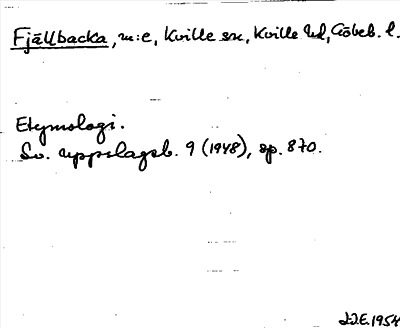 Fjällbacka, m:e, Kville sn, Kville hd, Göteb. l.
Etymologi.
Sv. uppslagsb. 9 (1948), sp. 870.
J.I.E. 1954